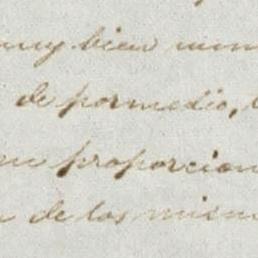 muy bien
de por medio,
en proporcion
de los mism